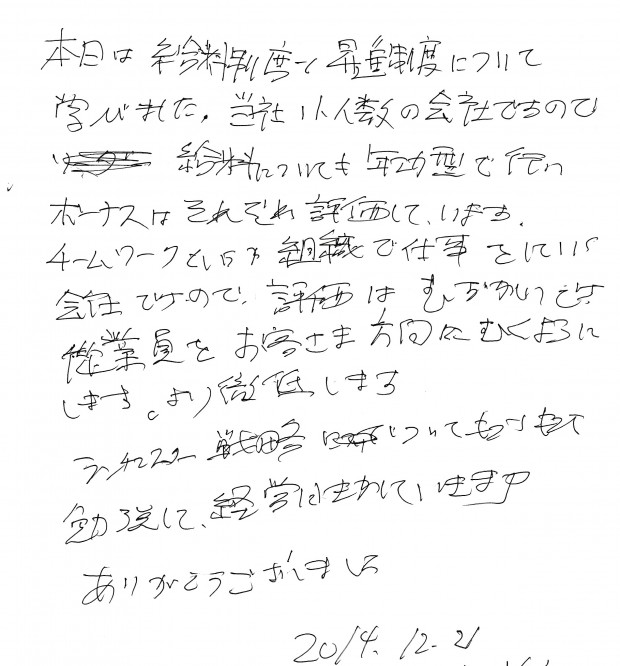 本日は給料制度と昇進制度について
学びました。当社小人数の会社ですので
給料についても年功型で行い
ボーナスはそれぞれ評価しています。
チームワークというか組織で仕事をしている
会社ですので、評価はむずかしいです
従業員をお客さま方向にむくように
します。より徹底します
ランチェスター戦略についてもっともっと
勉強して、経営に生かしていきます
ありがとうございました
2014.12.21